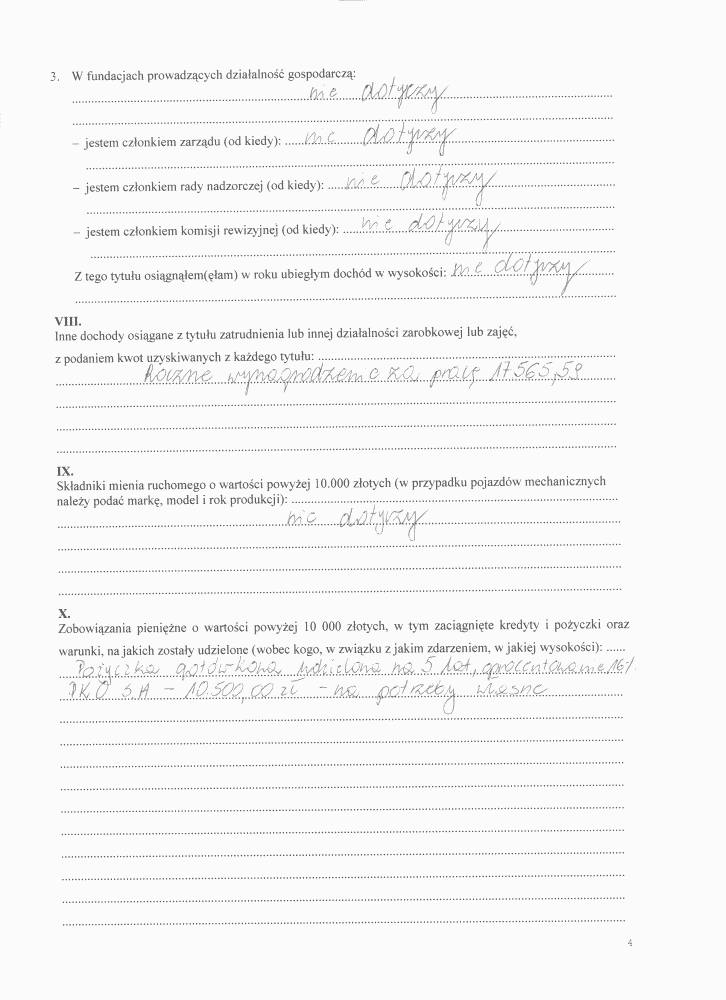 3. W fundacjach prowadzących działalność gospodarczą:
nie dotyczy
– jestem członkiem zarządu (od kiedy): nie dotyczy
– jestem członkiem rady nadzorczej (od kiedy): nie dotyczy
– jestem członkiem komisji rewizyjnej (od kiedy): nie dotyczy
Z tego tytułu osiągnąłem(ęłam) w roku ubiegłym dochód w wysokości: nie dotyczy
VIII.
Inne dochody osiągane z tytułu zatrudnienia lub innej działalności zarobkowej lub zajęć,
z podaniem kwot uzyskiwanych z każdego tytułu:
Roczne wynagrodzenie za pracę 17565,59
IX.
Składniki mienia ruchomego o wartości powyżej 10.000 złotych (w przypadku pojazdów mechanicznych
należy podać markę, model i rok produkcji):
nie dotyczy
X.
Zobowiązania pieniężne o wartości powyżej 10 000 złotych, w tym zaciągnięte kredyty i pożyczki oraz
warunki, na jakich zostały udzielone (wobec kogo, w związku z jakim zdarzeniem, w jakiej wysokości):
Pożyczka gotówkowa udzielona na 5 lat, oprocentowanie 16%
PKO S.A – 10.500,00 zł – na potrzeby własne
4